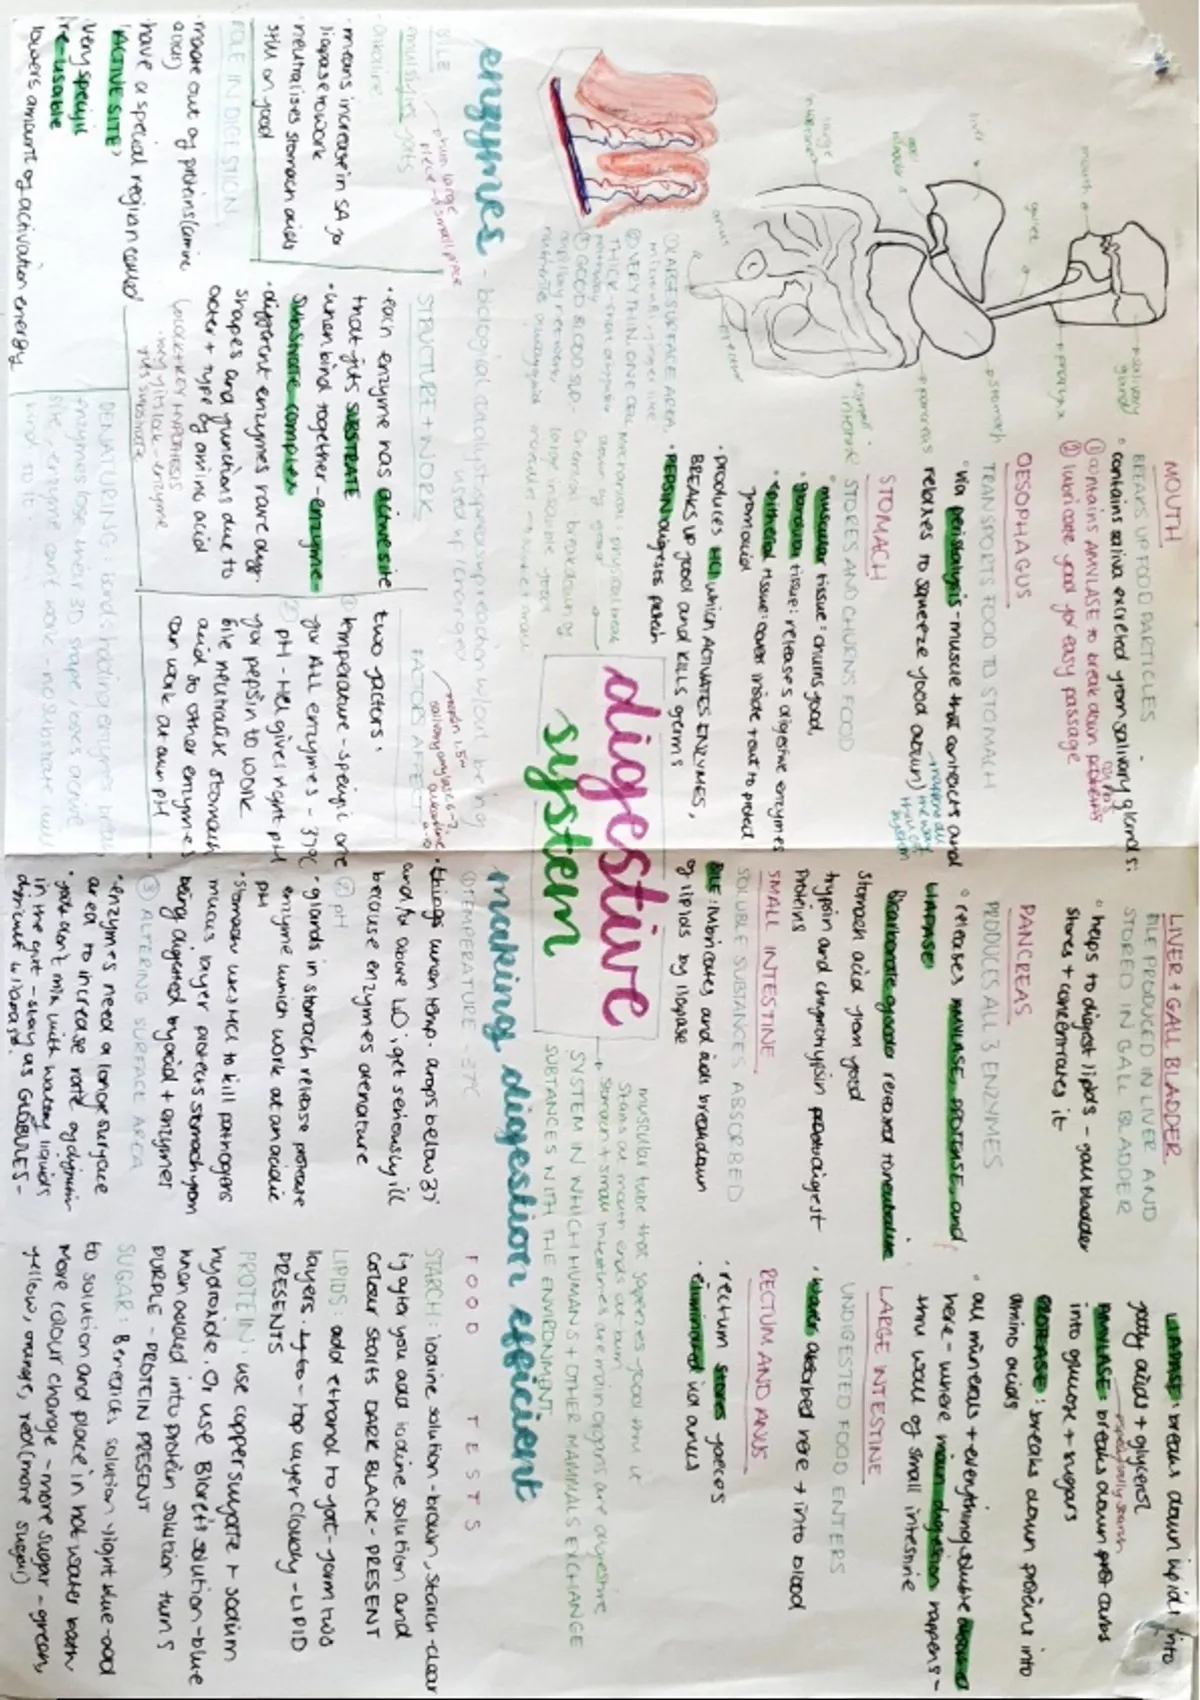 MOUTH
BREAKS UP FOOD PARTICLES
contains saliva excreted from salivary glands:
① contains AMYLASE to break down proteins
carbs
② lubricate food for easy passage
OESOPHAGUS
TRANSPORTS FOOD TO STOMACH
via peristalysis - muscle that contracts and
relaxes to squeeze food down)
STOMACH
STORES AND CHURNS FOOD
muscular tissue: churns food,
glandular tissue: releases digestive enzymes
epithelial tissue: cover inside + out to protect
from acid
· produces HCl which ACTIVATES ENZYMES,
BREAKS UP food and KILLS germs
· PEPSIN digests protein
LIVER + GALL BLADDER
BILE PRODUCED IN LIVER AND
STORED IN GALL BLADDER
helps to digest lipids - gall bladder
stores + concentrates it
PANCREAS
PRODUCES ALL 3 ENZYMES
releases AMYLASE, PROTEASE, and
LIPASE
Bicarbonate powder released to neutralise
stomach acid from food
trypsin and chymotrypsin digest
proteins
SMALL INTESTINE
SOLUBLE SUBSTANCES ABSORBED
BILE: lubricates and aids breakdown
of lipids by lipase
LIPASE: breaks down lipids into
fatty acids + glycerol
especially starch
AMYLASE: breaks down carbs
into glucose + sugars
PROTEASE: breaks down proteins into
amino acids
all minerals + everything soluble
here - where main digestion happens -
thru wall of small intestine
LARGE INTESTINE
UNDIGESTED FOOD ENTERS
· water absorbed here → into blood
RECTUM AND ANUS
· rectum stores faeces
· eliminated via anus
mouth
salivary
gland
pharynx
gullet
liver
stomach
gall
bladder
pancreas
large
intestine
small
intestine
anus
digestive
system
muscular tube that squeezes food thru it
starts at mouth ends at bum
stomach + small intestines are main organs are digestive
SYSTEM IN WHICH HUMANS + OTHER MAMMALS EXCHANGE
SUBTANCES WITH THE ENVIRONMENT
① LARGE SURFACE AREA
② VERY THIN, ONE CELL
THICK - short diffusion
pathway
③ GOOD BLOOD SUP-
enzymes - biological catalyst speeds up reaction w/out being
used up / changed
BILE
emulsifies fats
turn large
piece → small piece
· alkaline
· means increase in SA for
lipase to work
· neutralises stomach acids
still on food
ROLE IN DIGESTION
· made out of proteins (amino
acids)
· have a special region called
(ACTIVE SITE)
· very specific
re-usable
lowers amount of activation energy
STRUCTURE + WORK
· each enzyme has active site
that fits SUBSTRATE
· when bind together - enzyme-
substrate complex
· different enzymes have diff
shapes and functions due to
order + type of amino acid
LOCK + KEY HYPOTHESIS
· key fits lock - enzyme
fits substrate
DENATURING: bonds holding enzymes break
enzymes lose their 3D shape, loses active
site, enzyme can't work - no substrate will
bind to it.
FACTORS AFFECT
two factors:
① temperature - specific one
for ALL enzymes - 37°C
② pH - HCl gives right pH
for pepsin to work
bile neutralise stomach
acid so other enzymes
can work at own pH
making digestion efficient
① TEMPERATURE - 37°C
· things when temp. drops below 37
and/or above 40, get seriously ill
because enzymes denature
② pH
· glands in stomach release protease
enzyme which work at an acidic
pH
· stomach uses HCl to kill pathogens
mucus layer protects stomach from
being digested by acid + enzymes
③ ALTERING SURFACE AREA
· enzymes need a large surface
area to increase rate of digestion
· fats don't mix with watery liquids
in the gut - stay as GLOBULES -
difficult w lipase
FOOD TESTS
STARCH: iodine solution - brown, starch - clear
if after you add iodine solution and
colour starts DARK BLACK - PRESENT
LIPIDS: add ethanol to fat - form two
layers · top layer cloudy - LIPID
PRESENTS
PROTEIN: use copper sulfate + sodium
hydroxide. Or use Biuret's solution - blue
when added into protein solution turns
PURPLE - PROTEIN PRESENT
SUGAR: Benedicts solution light blue - add
to solution and place in hot water bath
more colour change - more sugar - green,
yellow, orange, red (more sugar)